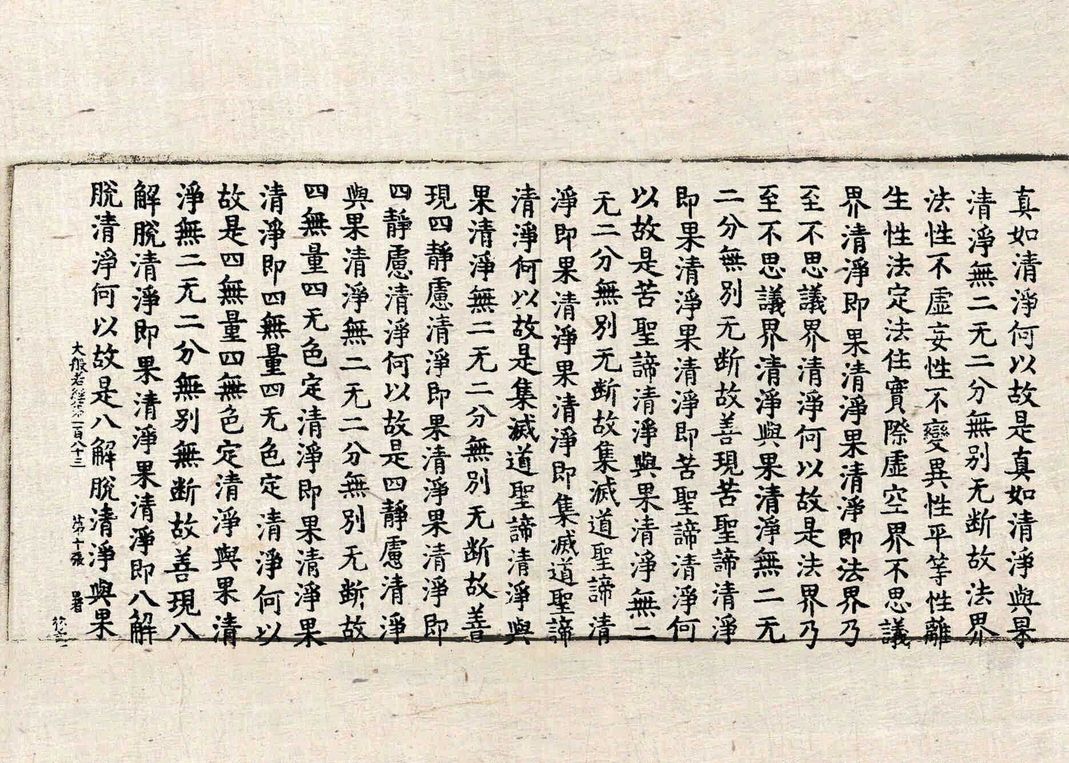 真如清淨何以故是真如清淨與果
清淨無二无二分無別无断故法界
法性不虛妄性不變異性平等性離
生性法定法住實際虛空界不思議
界清淨即果清淨果清淨即法界乃
至不思議界清淨何以故是法界乃
至不思議界清淨與果清淨無二无
二分無別无断故善現苦聖諦清淨
即果清淨果清淨即苦聖諦清淨何
以故是苦聖諦清淨與果清淨無二
无二分無別无断故集滅道聖諦清
淨即果清淨果清淨即集滅道聖諦
清淨何以故是集滅道聖諦清淨與
果清淨無二无二分無別无断故善
現四靜慮清淨即果清淨果清淨即
四靜慮清淨何以故是四靜慮清淨
與果清淨無二无二分無別无断故
四無量四无色定清淨即果清淨果
清淨即四無量四无色定清淨何以
故是四無量四無色定清淨與果清
淨無二无二分無別無断故善現八
解脫清淨即果清淨果清淨即八解
脫清淨何以故是八解脫清淨與果
大般若經第一百八十三 第十張 署